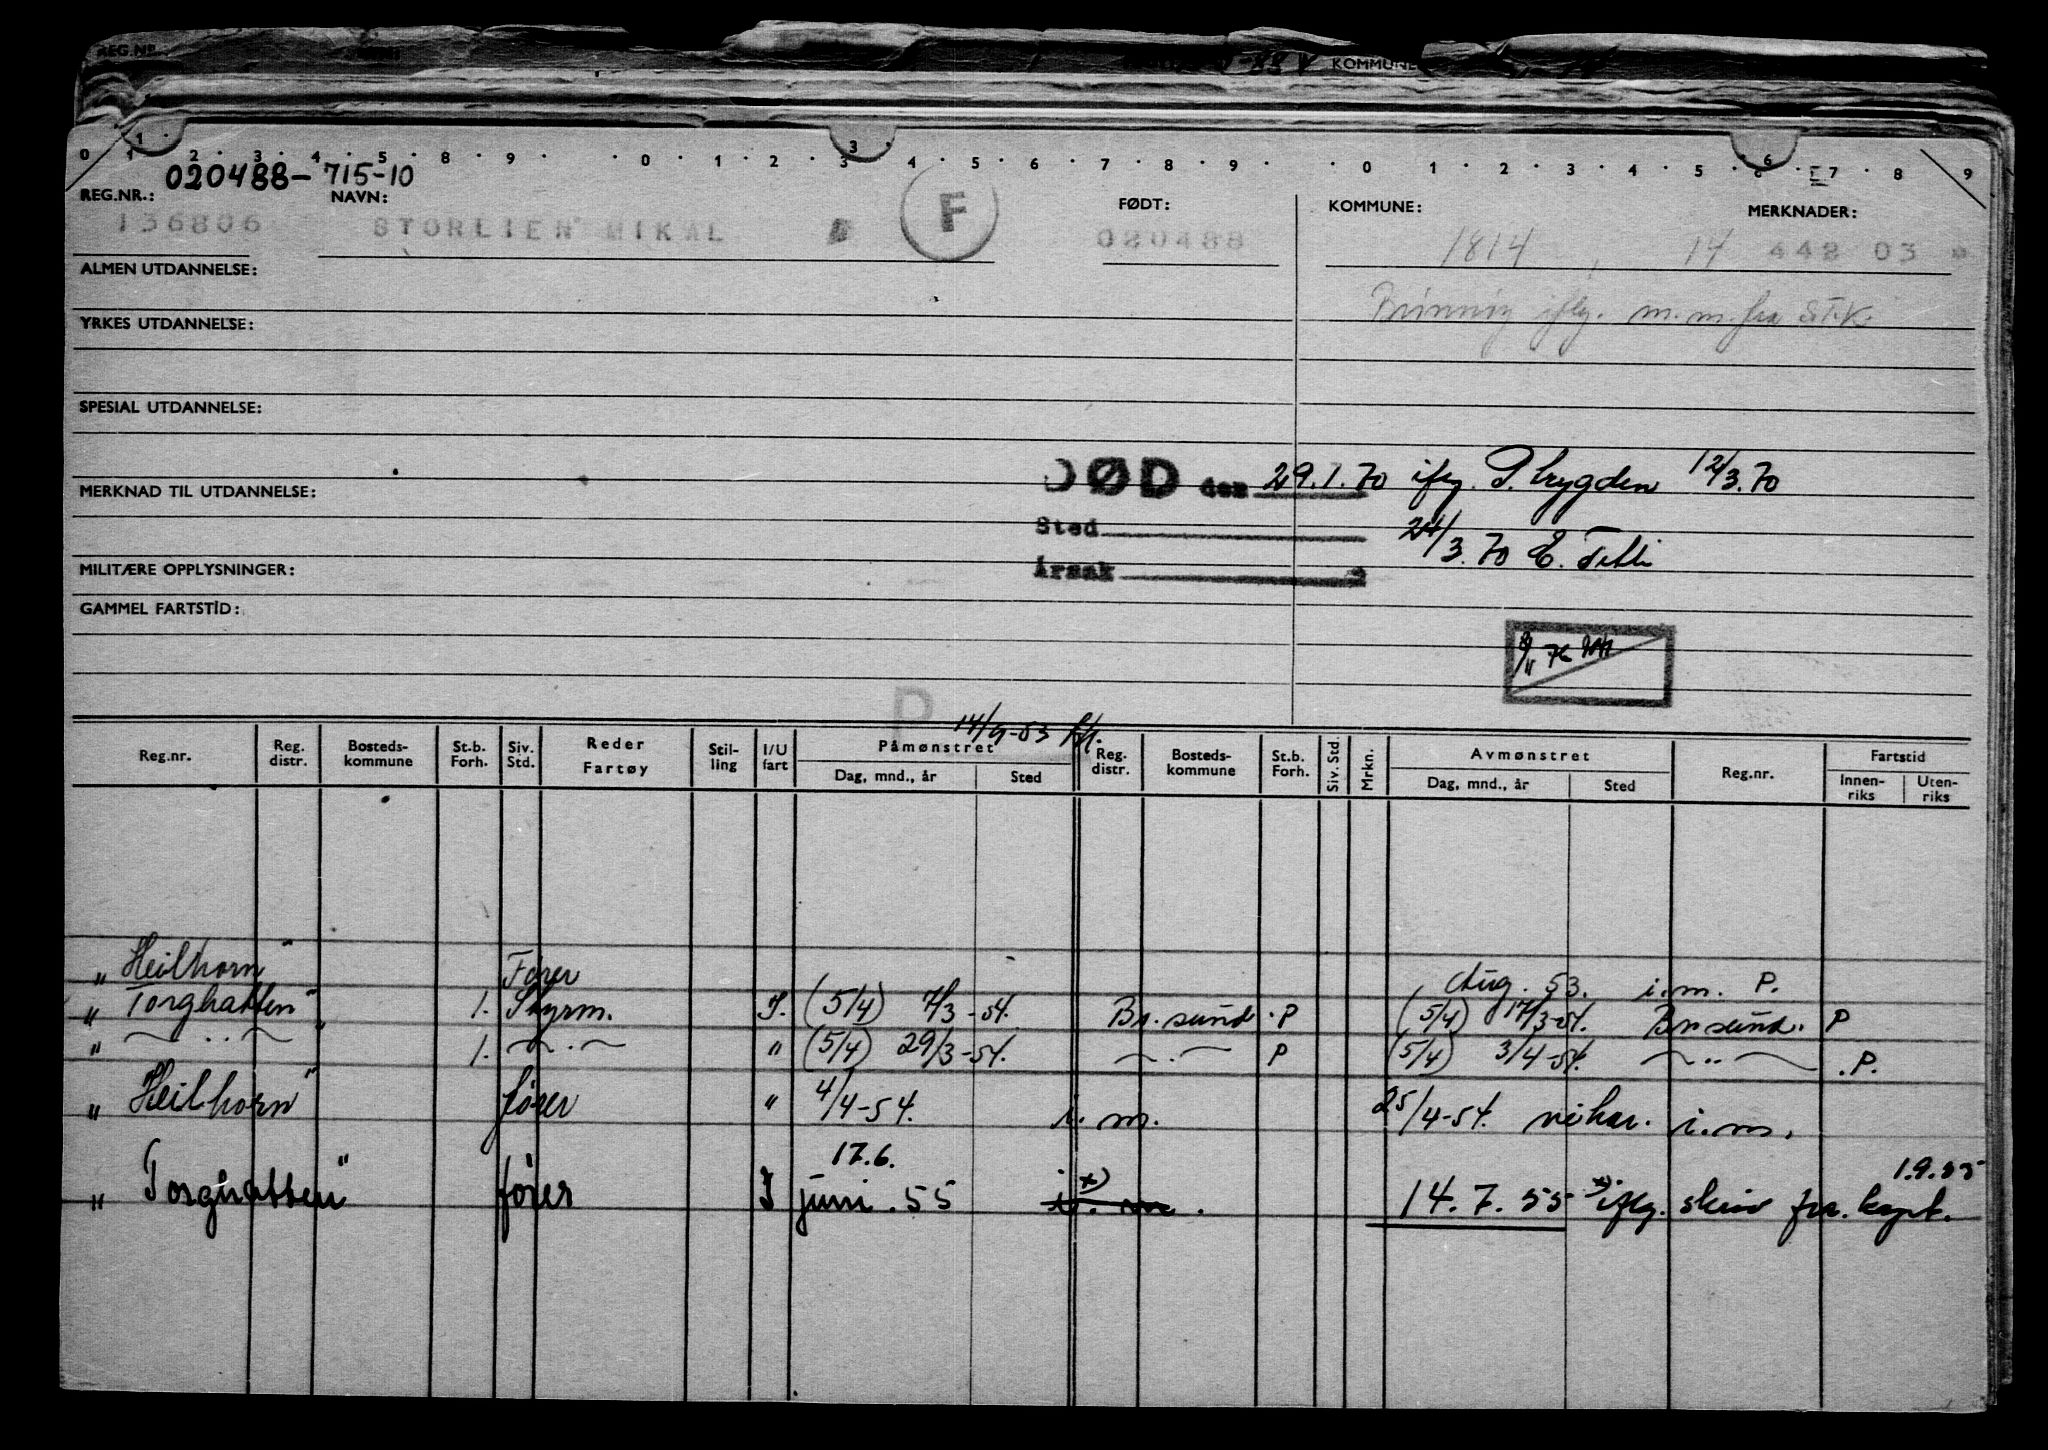 REG.NR. KOMMUNE
0 1 2 3 4 5 8 9 0 1 2 3 4 5 6 7 8 9 0 1 2 3 4 5 6 7 8 9
020488-715-10
REG.NR.: NAVN: FØDT: KOMMUNE: MERKNADER:
136806 STORLIEN MIKAL F 020488 1814 14 442 03
ALMEN UTDANNELSE:
Brønnøy iflg. m.m. fra St.K.
YRKES UTDANNELSE:
SPESIAL UTDANNELSE:
DØD den 29.1.70 iflg. P.trygden 12/3.70
MERKNAD TIL UTDANNELSE:
Sted 24/3.70 E.
MILITÆRE OPPLYSNINGER: Årsak
GAMMEL FARTSTID:
76
P 14/9-53
Reg.nr. Reg. distr. Bosteds-kommune St.b. Forh. Siv. Std. Reder Fartøy Stil-ling I/U fart Påmønstret Dag, mnd., år Sted Reg. distr. Bosteds-kommune St.b. Forh. Siv. Std. Mrkn. Avmønstret Dag, mnd., år Sted Reg.nr. Fartstid Innen-riks Uten-riks
„Heilhorn" Fører Aug. 53. i.m. P.
„Torghatten" 1. Styrm. I. (5/4) 7/3-54. Br.sund. P (5/4) 17/3-54. Br.sund. P
„ — .. — " 1. — . — " (5/4) 29/3-54. — . — P (5/4) 3/4-54. — .. — .P.
„Heilhorn" fører " 4/4-54. i.m. 25/4-54. vikar. i.m.
17.6. 1.9.55
„Torghatten" fører I juni.55 x) i.m. 14.7.55 x) iflg. skriv fra kapt.